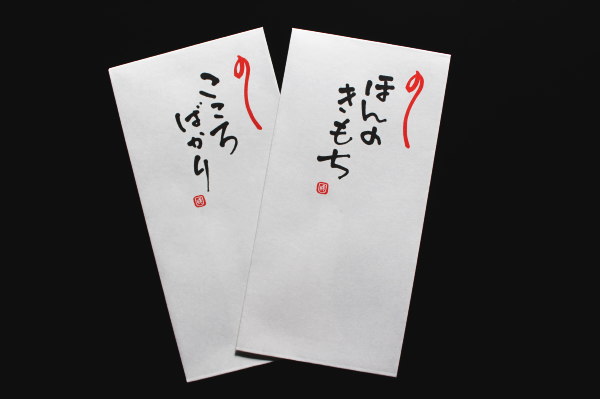 のし
こころ
ばかり
のし
ほんの
きもち